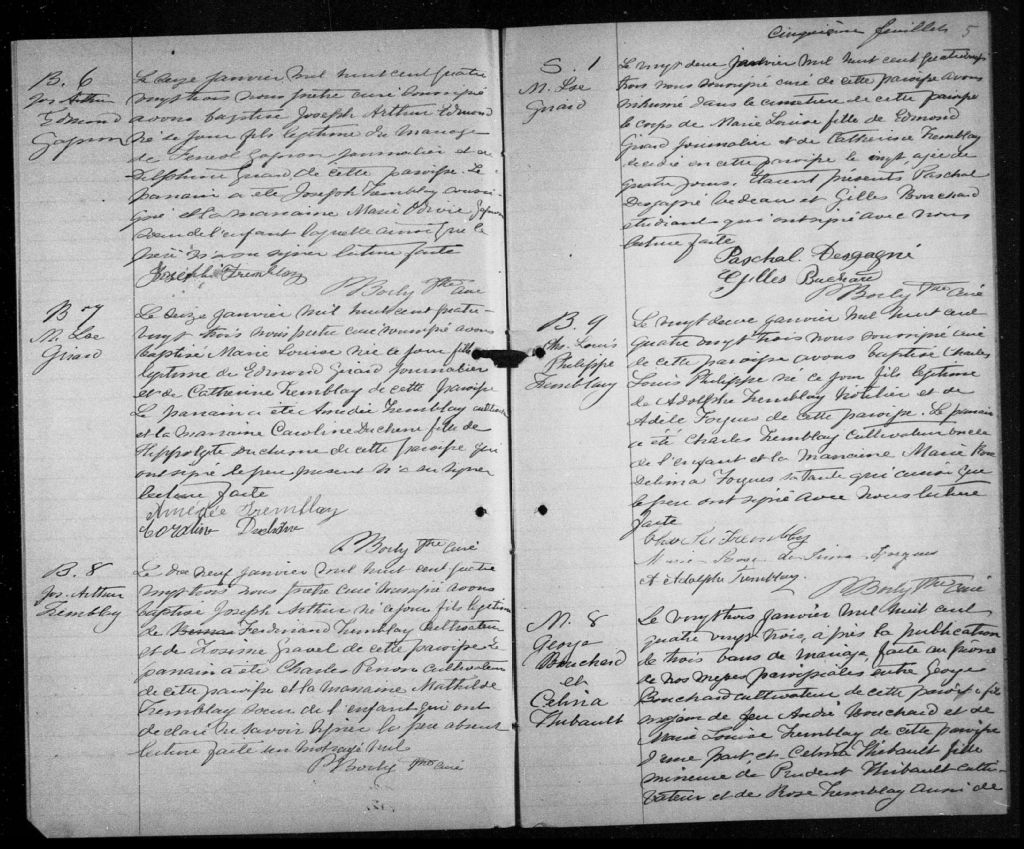 B. 6
Jos. Arthur
Edmond
Gagnon
Le onze janvier mil huit cent quatre
vingt trois nous prêtre curé soussigné
avons baptisé Joseph Arthur Edmond
né ce jour fils legitime du mariage
de Gagnon journalier et de
Delphine Girard de cette paroisse. Le
parrain a ete Joseph Tremblay soussi
gné et la marraine Marie Gagnon
soeur de l'enfant laquelle ainsi que le
père n'a su signer lecture faite
Joseph Tremblay
P Boily Ptre curé
B. 7
M. Lse
Girard
Le douze janvier mil huit cent quatre-
vingt trois nous prêtre curé soussigné avons
baptisé Marie Louise née ce jour fille
legitime de Edmond Girard journalier
et de Catherine Tremblay de cette paroisse
Le parrain a ete Amedée Tremblay cultivateur
et la marraine Caroline Duchene fille de
Hippolyte Duchesne de cette paroisse qui
ont signé le père present n'a su signer
lecture faite
Amedée Tremblay
Duchêne
P Boily Ptre curé
B. 8
Jos. Arthur
Tremblay
Le dix neuf janvier mil huit cent quatre
vingt trois nous prêtre curé soussigné avons
baptisé Joseph Arthur né ce jour fils legitime
de Ferdinand Tremblay cultivateur
et de Zosime Gravel de cette paroisse Le
parrain a été Charles Perron cultivateur
de cette paroisse et la marraine Mathilde
Tremblay soeur de l'enfant qui ont
declaré ne savoir signer le père absent
lecture faite un mot rayé nul
P Boily Ptre curé
Cinquième feuillets 5
S. 1
M. Lse
Girard
Le vingt deux janvier mil huit cent quatrevingt
trois nous soussigné curé de cette paroisse avons
inhumé dans le cimetière de cette paroisse
le corps de Marie Louise fille de Edmond
Girard journalier et de Catherine Tremblay
décédée en cette paroisse le vingt, agée de
quatre jours. Etaient présents Paschal
Desgagné bedeau et Gilles Bouchard
etudiant qui ont signé avec nous
lecture faite
Paschal. Desgagné
Gilles Buchard
P Boily Ptre curé
B. 9
Chs. Louis
Philippe
Tremblay
Le vingt deux janvier mil huit cent
quatre vingt trois nous soussigné curé
de cette paroisse avons baptisé Charles
Louis Philippe né ce jour fils legitime
de Adolphe Tremblay hôtelier et de
Adèle Forgues de cette paroisse. Le parrain
a été Charles Tremblay cultivateur oncle
de l'enfant et la marraine Marie Rose
Delima Forgues sa tante qui ainsi que
le père ont signé avec nous lecture
faite
Charles Tremblay
Marie Rose de Lima Forgues
Adolphe Tremblay.
P Boily Ptre curé
M. 8
George
Bouchard
et
Celina
Thibault
Le vingt trois janvier mil huit cent
quatre vingt trois, après la publication
de trois bans de mariage, faite au prone
de nos messes paroissiales entre Georges
Bouchard cultivateur de cette paroisse fils
majeur de feu André Bouchard et de
Marie Louise Tremblay de cette paroisse
d'une part, et Celina Thibault fille
mineure de Prudent Thibault culti-
vateur et de Rose Tremblay aussi de